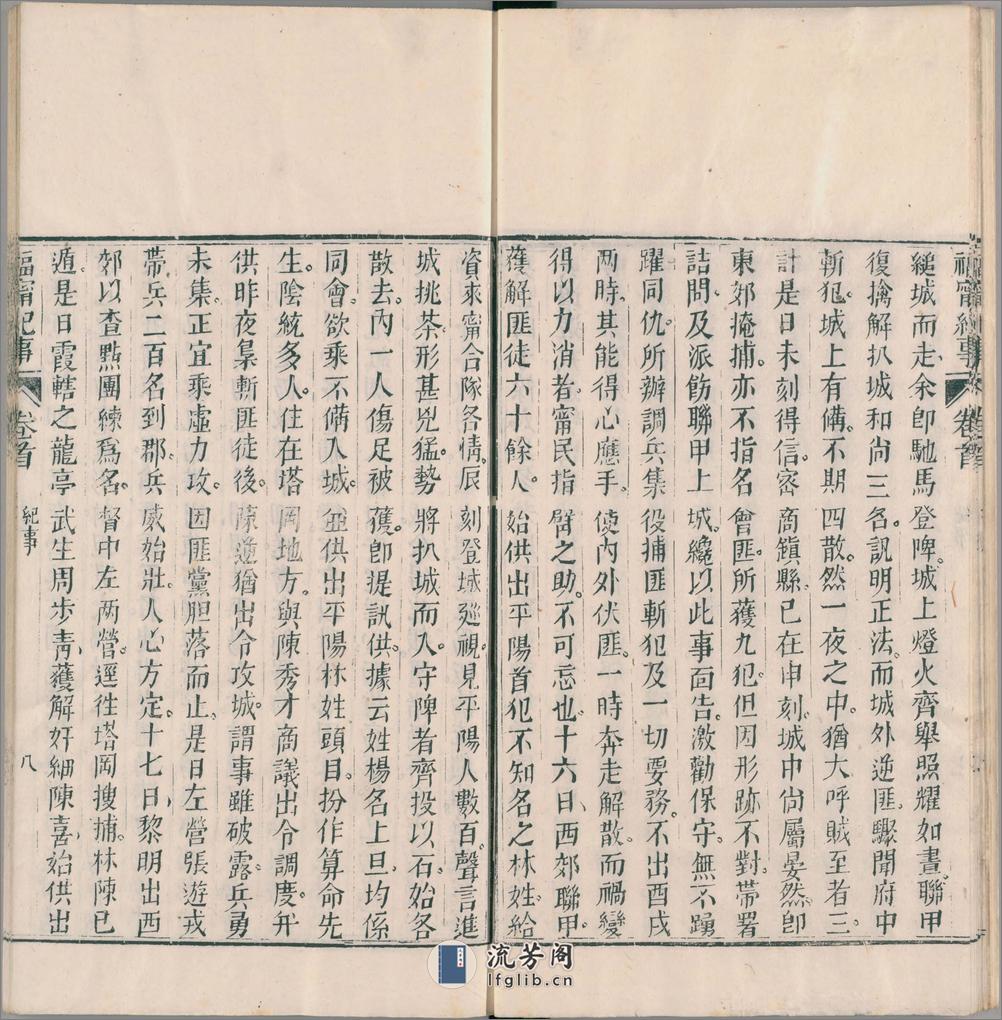 福甯紀事 卷首
縋城而走余卽馳馬登陴城上燈火齊舉照耀如晝聯甲
復擒解扒城和尚三名訊明正法而城外逆匪驟聞府中
斬犯城上有備不期四散然一夜之中猶大呼賊至者三
計是日未刻得信密商鎮縣已在申刻城中尙屬晏然卽
東郊掩捕亦不指名會匪所獲九犯但因形跡不對帶署
詰問及派飭聯甲上城纔以此事面告激勸保守無不踴
躍同仇所辦調兵集役捕匪斬犯及一切要務不出酉戌
两時其能得心應手使內外伏匪一時奔走解散而禍變
得以力消者甯民指臂之助不可忘也十六日西郊聯甲
獲解匪徒六十餘人始供出平陽首犯不知名之林姓給
資來甯合隊各情辰刻登城廵視見平陽人數百聲言進
城挑茶形甚兇猛勢將扒城而入守陴者齊投以石始各
散去內一人傷足被獲卽提訊供據云姓楊名上旦均係
同會欲乘不備入城並供出平陽林姓頭目扮作算命先
生陰統多人住在塔岡地方與陳秀才商議出令調度幷
供昨夜梟斬匪徒後陳逆猶出令攻城謂事雖破露兵勇
未集正宜乘虛力攻因匪黨胆落而止是日左營張遊戎
帶兵二百名到郡兵威始壯人心方定十七日黎明出西
郊以查點團練爲名督中左两營逕徃塔岡搜捕林陳已
遁是日霞轄之龍亭武生周步青獲解奸細陳喜始供出
福甯紀事 卷首 紀事 八
流芳阁
lfglib.cn